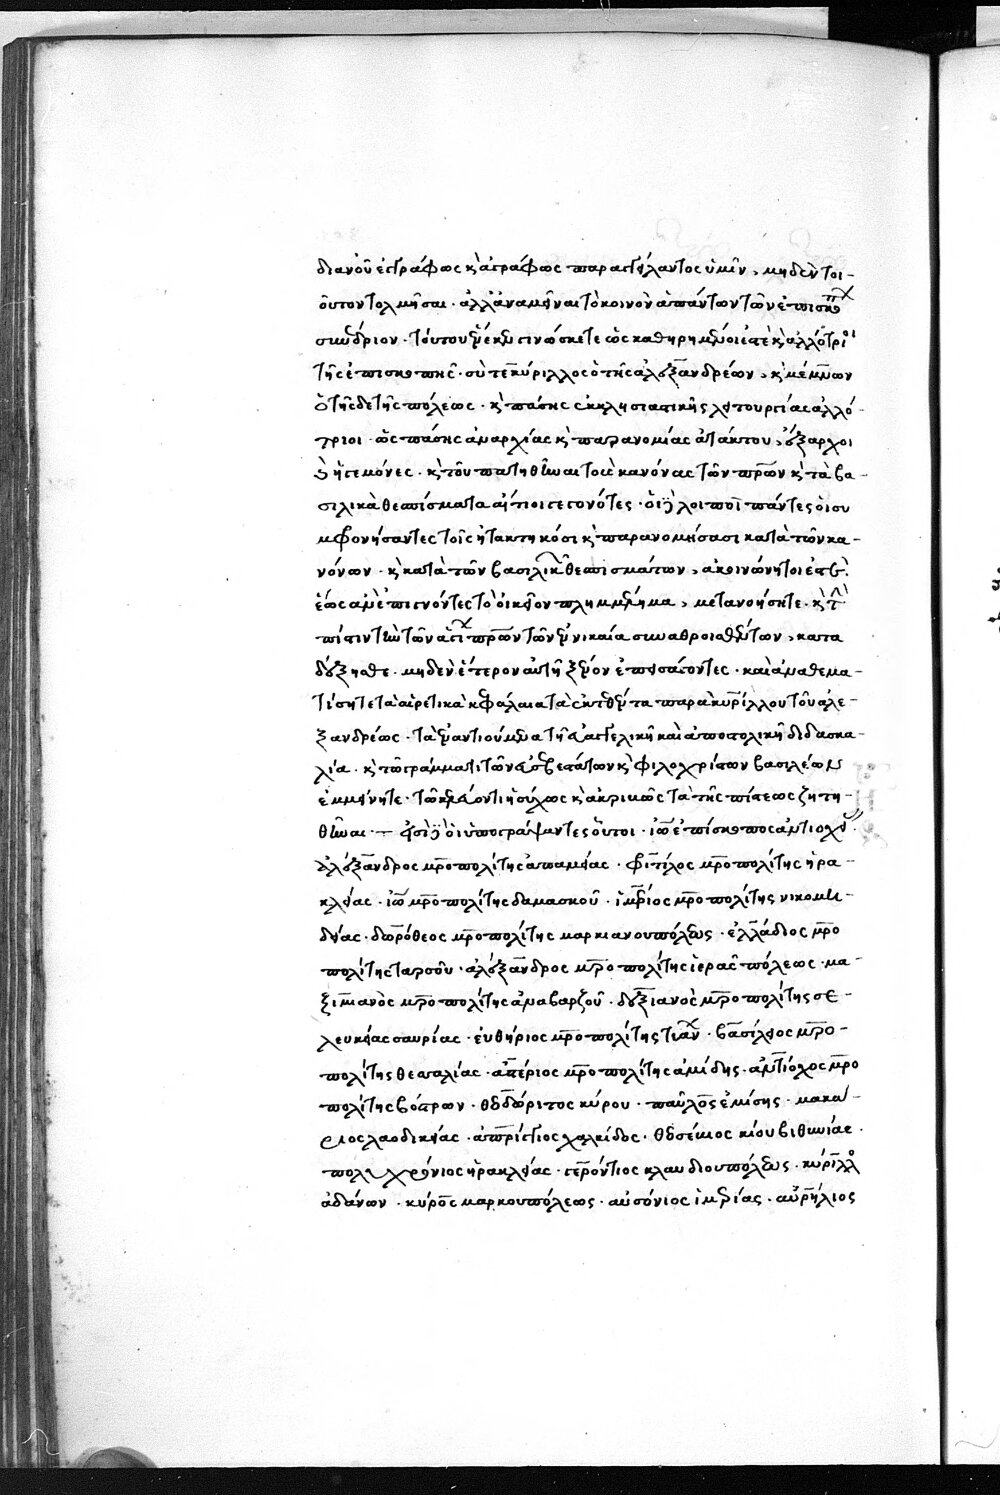 διανοῦ ἐγγράφως κ̀ ἀγράφως παραγγείλαντος ὑμῖν, μηδὲν τοι-
οῦτον τολμῆσαι · ἀλλ' ἀναμεῖναι τὸ κοινὸν ἁπάντων τῶν ἐπισκό
συνέδριον · τούτου ἕνεκεν γινώσκετε ὡς καθῃρημένοι ἐστὲ κ̀ ἀλλότριοι
τῆς ἐπισκοπῆς · σύ τε κύριλλος ὁ τῆς ἀλεξανδρέων, κ̀ μέμνων
ὁ τῆσδε τῆς πόλεως · κ̀ πάσης ἐκκλησιαστικῆς λειτουργίας ἀλλό-
τριοι · ὡς πάσης ἀναρχίας κ̀ παρανομίας ἀτάκτου, ἔξαρχοι
κ̀ ἡγεμόνες · κ̀ τοῦ πατηθῆναι τοὺς κανόνας τῶν πρων κ̀ τὰ βα-
σιλικὰ θεσπίσματα αἴτιοι γεγονότες · οἱ δὲ λοιποὶ πάντες οἱ συ
μφονήσαντες τοῖς ἠτακτηκόσι κ̀ παρανομήσασι κατὰ τῶν κα-
νόνων · κ̀ κατὰ τῶν βασιλικῶν θεσπισμάτων, ἀκοινώνητοι ἐστὲ ·
ἕως ἂν ἐπιγνόντες τὸ οἰκεῖον πλημμέλημα, μετανοήσητε · κ̀ τὴν
πίστιν τὴν τῶν ἁγί πρων τῶν ἐν νικαία συναθροισθέντων, κατα
δέξησθε · μηδὲν ἕτερον αὐτῆ ξένον ἐπεισάγοντες · καὶ ἀναθεμα-
τίσητε τὰ αἱρετικὰ κεφάλαια τὰ ἐκτεθέντα παρὰ κυρίλλου τοῦ ἀλε-
ξανδρέως · τὰ ἐναντιούμενα τῆ εὐαγγελικῆ καὶ ἀποστολικῆ διδασκα-
λία · κ̀ τῶ γράμματι τῶν εὐσεβεστάτων κ̀ φιλοχρίστων βασιλέων
ἐμμείνητε · τῶ κελεύοντι ἡσύχως κ̀ ἀκριβῶς τὰ τῆς πίστεως ζητη-
θῆναι · – εἰσὶ δὲ οἱ ὑπογράψαντες οὗτοι · ἰω ἐπίσκοπος ἀντιοχεί
ἀλέξανδρος μροπολίτης ἀπαμείας · φίτηλος μροπολίτης ἡρα-
κλείας · ἰω μροπολίτης δαμασκοῦ · ἱμέριος μροπολίτης νικομη-
δείας · δωρόθεος μροπολίτης μαρκιανουπόλεως · ἐλλάδιος μρο
πολίτης ταρσοῦ · ἀλέξανδρος μροπολίτης ἱερᾶς πόλεως · μα-
ξιμιανὸς μροπολίτης ἀναβαρζοῦ · δεξιανὸς μροπολίτης σε-
λευκείας σαυρίας · εὐθήριος μροπολίτης τιαν · βασίλειος μρο-
πολίτης θεσσαλίας · ἀστέριος μροπολίτης ἀμίδης · ἀντίοχος μρο
πολίτης βόστρων · θεοδώριτος κύρου · παῦλος ἐμίσης · μακα-
ριος λαοδικείας · ἀπρίγγιος χαλκίδος · θεοσέμιος κίου βιθυνίας ·
πολυχρόνιος ἡρακλείας · γερόντιος κλαυδιουπόλεως · κύριλλο
ἀδάνων · κύρος μαρκουπόλεως · αὐσόνιος ἱμερίας · αὐρήλιος